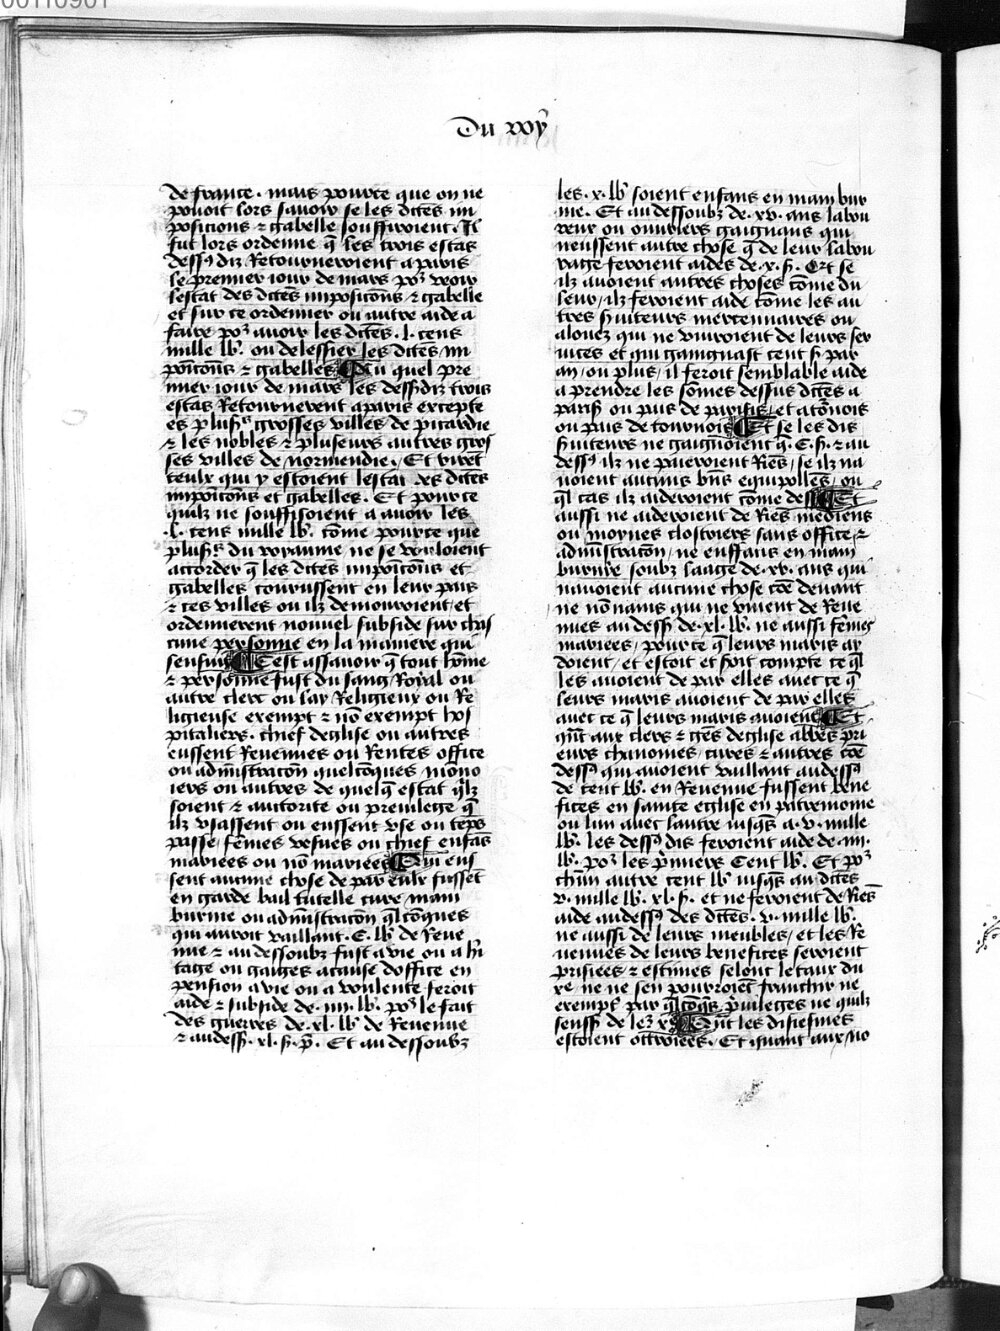 00110901
Du roy
de france . mais pource que on ne
pouoit lors sauoir se les dites im
posicions ⁊ gabelle souffiroient . Il
fut lors ordenne q̃ les trois estas
dessꝰ diz Retourneroient a paris
le premier iour de mars poᷣ veoir
lestat des dites imposicōns ⁊ gabelle
et sur ce ordenner ou autre aide a
faire poᷣ auoir les dites .l. cens
mille lb̃. ou delessier les dites im
poīcōns ⁊ gabelles ¶ Au quel pre
mier iour de mars les dessꝰdiz trois
estas Retournerent a paris excepte
es plusꝰs grosses villes de picardie
⁊ les nobles ⁊ pluseurs autres gros
ses villes de normendie . Et virēt
ceulx qui y estoient lestat des dites
impoīcōns et gabelles . Et pource
quilz ne souffisoient a auoir les
.l. cens mille lb̃. cōme pource que
plusꝰs du royaume ne se vouloient
accorder q̃ les dites impoīcōns et
gabelles courussent en leur pais
⁊ ces villes ou ilz demouroient / et
ordennerent nouuel subside sur chas
cune personne en la maniere qui
sensuit ¶ Cest assauoir q̃ tout hōme
⁊ personne fust du sang Royal ou
autre clerc ou lay Religieux ou Re
ligieuse exempt ⁊ nō exempt hos
pitaliers . chief deglise ou autres
eussent Reuenues ou Rentes office
ou admīstracōn quelcōques mōno
iers ou autres de quelq̃ estat q̃lz
soient ⁊ auctorite ou preuilege q̃
ilz vsassent ou eussent vse ou tēps
passe / fēmes vefues ou chief enfās
mariees ou nō mariees ¶ Qui eus
sent aucune chose de par eulx fussēt
en garde bail tutelle cure / mam
burnie ou admīstracōn q̃lcōques
qui auroit vaillant .C. lb̃ de Reue
nue ⁊ au dessoubz fust a vie ou a h̃i
tage ou gaiges a cause doffice en
pension a vie ou a voulente feroit
aide ⁊ subside de .iiii. lb̃. poᷣ le fait
des guerres de .xl. lb̃ de Reuenue
⁊ au dessꝰ .xl. ß. p̃. Et au dessoubz
les .x. lb̃ soient enfans en mam bur
nie . Et au dessoubz de .xv. ans labou
reur ou ouuriers gaignans qui
neussent autre chose q̃ de leur labou
rage feroient aides de .x. ß. Et se
ilz auoient autres choses cōme du
leur / ilz feroient aide cōme les au
tres ßuiteurs mercennaires ou
alouez qui ne viuroient de leurs ser
uices et qui gaingnast cent ß par
an / ou plus / il feroit semblable aide
a prendre les sōmes dessus dites a
pariß ou pais de parisis / et a tōnois
ou pais de tournois ¶ Et se les dis
ßuiteurs ne gaignoient q̃ .C. ß. ⁊ au
dessꝰ ilz ne paieroient Riēs / se ilz na
uoient aucuns bn̄s equipollēs / ou
q̃l cas ilz aideroient cōme dessꝰ ¶ Et
aussi ne aideroient de Riēs mediens
ou moynes cloistriers sans office / ⁊
admīstracōn / ne enffans en mam
burnie soubz laage de .xv. ans qui
nauoient aucune chose cōe deuant
ne nōnains qui ne vinient de Reue
nues au dessꝰ de .xl. lb̃. ne aussi fēmes
mariees / pource q̃ leurs maris ay
doient / et estoit et soit compte ce q̃l
les auoient de par elles auec ce q̃
leurs maris auoient de par elles
auec ce q̃ leurs maris auoient ¶ Et
q̃nt aux clers ⁊ gēs deglise abbes pri
eurs chanoines / cures ⁊ autres cōe
dessꝰ qui auoient vaillant au dessꝰ
de cent lb̃. en Reuenue fussent bene
fices en sainte eglise en patremoine
ou lun auec lautre iusq̃s a .v. mille
lb̃. les dessꝰ dis feroient aide de .iiii.
lb̃. poᷣ les p̃miers Cent lb̃. Et poᷣ
chūn autre cent lb̃ iusq̃s au dites
v. mille lb̃. xl. ß. et ne feroient de Riēs
aide au dessꝰ des dites .v. mille lb̃.
ne aussi de leurs meubles / et les Re
uenues de leurs benefices seroient
prisiees ⁊ estimes selonc le taux du
xe / ne ne sen pourroient franchir ne
exempt par q̃lcōq̃s p̃uileges ne quilz
seussꝰ de lez
estoient ottroiees . Et quant aux no